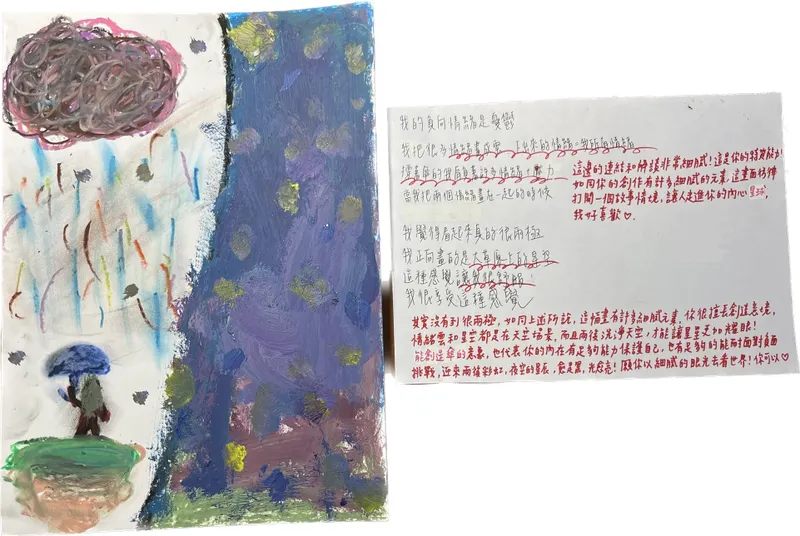 我的負向情緒是憂鬱
我把很多情緒畫成雲,下出來的情緒=我所有情緒
撐著傘的我肩負著許多情緒、壓力
當我把兩個情緒畫在一起的時候
我覺得看起來真的很兩極
我正向畫的是大草原上的星空
這種感覺讓我很舒服
我很享受這種感覺
這邊的連結和解讀非常細膩!這是你的特殊能力!
如同你的創作有許多細膩的元素,這畫面彷彿
打開一個故事情境,讓人走進你的內心星球,
我好喜歡♡。
其實沒有到很兩極,如同上述所說,這幅畫有許多細膩元素,你很擅長創造意境,
情緒雲和星空都是在天空場景,而且雨後洗淨天空,才能讓星星更加耀眼!
能創造傘的意象,也代表你的內在有足夠能力保護自己,也有足夠的能耐面對負面
挑戰,迎來雨後彩虹,夜空的星辰,愈是黑,光愈亮!願你以細膩的眼光去看世界!你可以♡